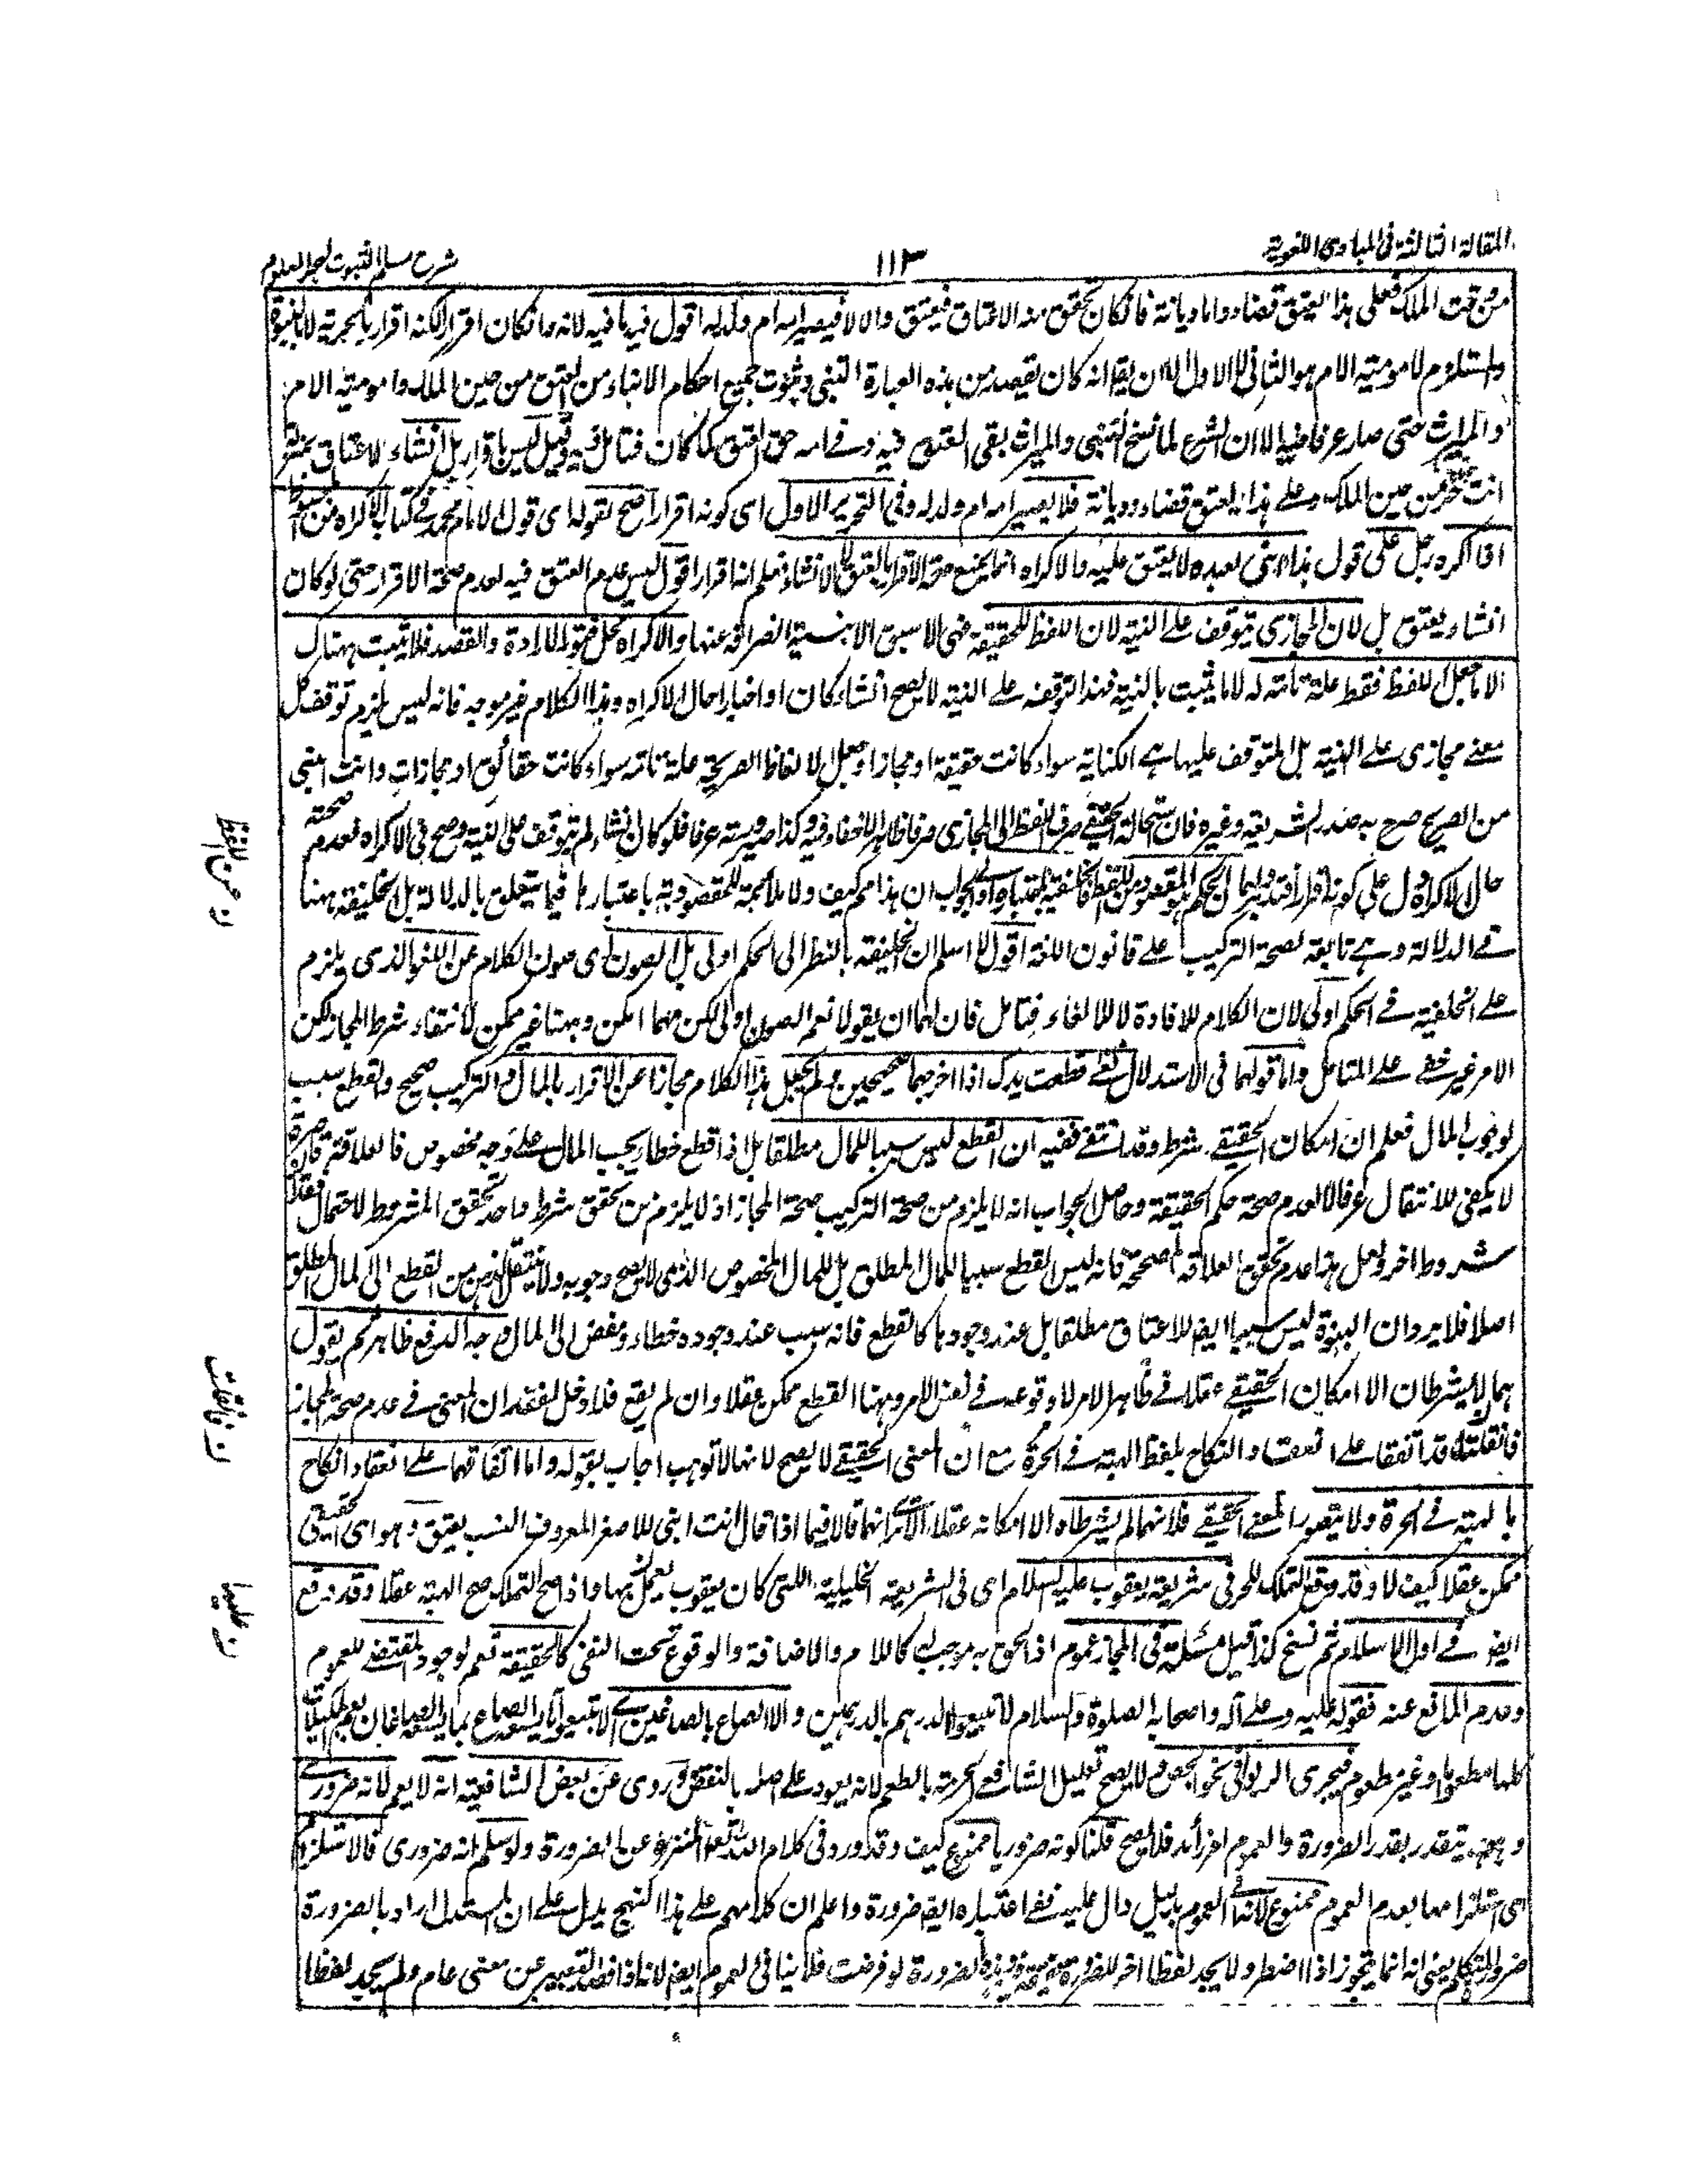 المقالة الثالثة فى المبادى اللغوية
١١٣
شرح مسلم الثبوت لبحر العلوم
من وقت الملك فعلى هذا يعتق قضاء واما ديانة فان كان تحقق منه الاعتاق فيعتق والا لا فيصير امه ام ولد له اقول فيه ما فيه لانه وان كان اقرارا لكنه اقرار بالحرية لا بالبنوة
والمستلزم لامومية الام هو الثانى لا الاول الا ان يقا انه كان يقصد من هذه العبارة التبنى وثبوت جميع احكام الابناء من العتق من حين الملك وامومية الام
والميراث حتى صار عرفا فيه الا ان الشرع لما نسخ التبنى والميراث بقى العتق فيه وفے امه حق العتق كما كان فتامل فيه وقيل ليس باقرار بل انشاء لاعتاق
انت حر من حين الملك وعلے هذا يعتق قضاء وديانة فلا يصير امه ام ولد له وفى التحرير الاول اى كونه اقرارا اصح لقوله اى قول الامام محمد فے كتاب الاكراه من المبسوط
اذا اكره رجل على قول هذا ابنى لعبده لا يعتق عليه والاكراه انما يمنع صحة الاقرار بالعتق لا الانشاء فعلم انه اقرار اقول ليس عدم العتق فيه لعدم صحة الاقرار حتى لو كان
انشاء يعتق بل لان المجازى يتوقف علے النية لان اللفظ للحقيقة حتى لا سبق الا بنية الصرافة عنها والاكراه يخل فيه الارادة والقصد فلا يثبت هناك
الا ما جعل اللفظ فقط علة تامة له لا ما يثبت بالنية فهذا لتوقفه علے النية لا يصح انشاء كان او اخبارا حال الاكراه وهذا الكلام غير موجه فانه ليس يلزم توقف كل
معنے مجازى علے النية بل المتوقف عليها هے الكناية سواء كانت حقيقة او مجازا وجعل الالفاظ الصريحة علة تامة سواء كانت حقائق او مجازات وانت ابنى
من الصريح صرح به صدر الشريعة وغيره فان استحالة الحقيقے صرف اللفظ الى المجازى صرفا ظاهرا لا خفاء فيه وكذا صيرورته عرفا فلو كان انشاء لم يتوقف على النية وصح فى الاكراه لعدم صحته
حال الاكراه دل على كونه اقرارا فتدبر ولهما ان الحكم هو المقصود من اللفظ فالخلفية باعتباره اولى والجواب ان هذا مم كيف ولا ملازمة للمقصودية باعتبارها فيما يتعلق بالدلالة بل الخليفة ههنا
فے الدلالة وهے تابعة لصحة التركيب علے قانون اللغة اقول لا اسلم ان الخليفة بالنظر الى الحكم اولى بل الصون اى صون الكلام عن اللغو الذى يلزم
علے الخلفية فے الحكم اولى لان الكلام للافادة لا للالغاء فتامل فان لهما ان يقولا نعم الصون اولى لكن مهما امكن وههنا غير ممكن لانتفاء شرط المجاز لكن
الامر غير خفے علے المتامل واما قولهما فى الاستدلال لغے قطعت يدك اذا اخرجهما صحيحين ولم يجعل هذا الكلام مجازا عن الاقرار بالمال والتركيب صحيح والقطع سبب
لوجوب المال فعلم ان امكان الحقيقے شرط وقد انتفے ففيه ان القطع ليس سببا للمال مطلقا بل اذا قطع خطا يجب المال علے وجه مخصوص فالعلاقة قاصرة
لا يكفى للانتقال عرفا لا لعدم صحة حكم الحقيقة وحاصل الجواب انه لا يلزم من صحة التركيب صحة المجاز اذ لا يلزم من تحقق شرط واحد تحقق المشروط لاحتمال فقدان
شروط اخر ولعل هذا عدم تحقق العلاقة المصححة فانه ليس القطع سببا للمال المطلق بل للمال المخصوص الذى لا يصح وجوبه ولا ينتقل الذهن من القطع الى المال المطلق
اصلا فلا يرد ان البنوة ليس سببا ايضا للاعتاق مطلقا بل عند وجودها كالقطع فانه سبب عند وجوده خطاء ومفض الى المال وجه الدفع ظاهر ثم يقول
هما لا يشرطان الا امكان الحقيقے عقلا فے ظاهر الامر لا وقوعه فے نفس الامر وههنا القطع ممكن عقلا وان لم يقع فلا دخل لفقدان المعنى فے عدم صحة المجاز
فان قلت قد اتفقا علے انعقاد النكاح بلفظ الهبة فے الحرة مع ان المعنى الحقيقے لا يصح لانها لا توهب اجاب بقوله واما اتفاقهما علے انعقاد النكاح
بالهبة فے الحرة ولا يتصور المعنے الحقيقے فلانهما لم يشرطاه الا امكانه عقلا الا ترى انهما قالا فيما اذا قال انت ابنى للاصغر المعروف النسب يعتق وهو اى الحقيقى
ممكن عقلا كيف لا وقد وقع التملك للحر فى شريعة يعقوب عليه السلام اى فى الشريعة الخليلية اللتى كان يعقوب يعمل بها واذا صح التملك صح الهبة عقلا وقد وقع
ايضا فے اول الاسلام ثم نسخ كذا قيل مسئلة فى المجاز عموم اذا لحق به موجب له كاللام والاضافة والوقوع تحت النفى كالحقيقة نعم لوجود المقتضے للعموم
وعدم المانع عنه فقوله عليه وعلے آله واصحابه الصلوة والسلام لا تبيعوا الدرهم بالدرهمين ولا الصاع بالصاعين اى لا تبيعوا ما يسعه الصاع بما يسعه الصاعان
كلها مطعوما وغير مطعوم فيجرى الربوا فى نحو الجص ولا يصح تعليل الشافعے الحرمة بالطعم لانه يعود علے اصله بالنقض وروى عن بعض الشافعية انه لا يعم لانه ضرورے
وهو يتقدر بقدر الضرورة والعموم امر زائد فلا يصح قلنا كونه ضروريا ممنوع كيف وقد ورد فى كلام الله تعالى المنزه عن الضرورة ولو سلم انه ضرورى فالاستلزام
اى استلزامها لعدم العموم ممنوع لانه اے العموم بدليل دال عليه ففے اعتباره ايضا ضرورة واعلم ان كلامهم على هذا النهج يدل علے ان المستدل اراد بالضرورة
ضرورة المتكلم يعنى انه انما يتجوز اذا اضطر ولا يجد لفظا اخر للضرورة لو فرضت فلا ينافى العموم ايضا لانه اذا قصد التعبير عن معنى عام ولم يجد لفظا